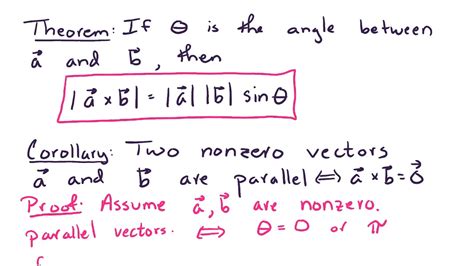 Theorem: If θ is the angle between
a⃗ and b⃗, then
|a⃗ × b⃗| = |a⃗| |b⃗| sin θ
Corollary: Two nonzero vectors
a⃗ and b⃗ are parallel ⟺ a⃗ × b⃗ = 0⃗
Proof: Assume a⃗, b⃗ are nonzero.
parallel vectors. ⟺ θ = 0 or π